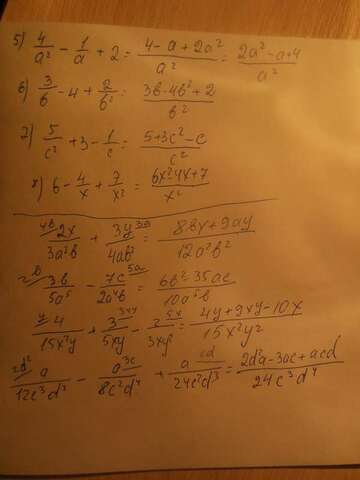 5) 4/a² - 1/a + 2 = (4-a+2a²)/a² = (2a²-a+4)/a²
6) 3/b - 4 + 2/b² = (3b-4b²+2)/b²
7) 5/c² + 3 - 1/c = (5+3c²-c)/c²
8) 6 - 4/x + 7/x² = (6x²-4x+7)/x²
4b 2x/3a²b + 3y 3a/4ab² = (8bx+9ay)/12a²b²
2b 3b/5a⁵ - 7c 5a/2a⁴b = (6b²-35ac)/10a⁵b
y 4/15x²y + 3 3xy/5xy - 2 5x/3xy² = (4y+9xy-10x)/15x²y²
2d² a/12c³d² - a 3c/8c²d⁴ + a cd/24c²d³ = (2d²a-3ac+acd)/24c³d⁴